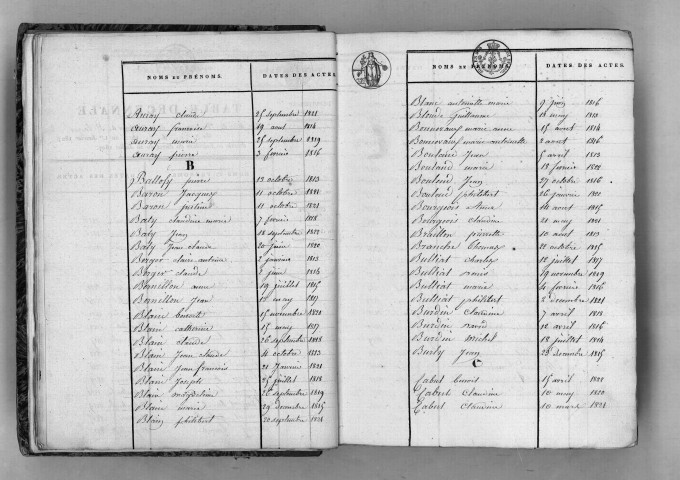 NOMS ET PRÉNOMS. DATES DES ACTES
auray claude 25 septembre 1821
auray francoise 19 aout 1814
auray marie 25 septembre 1819
auray pierre 3 fevrier 1816
B
Balloff pierre 13 octobre 1813
Baron Jacques 11 octobre
Baron justine 11 octobre 1821
Baty claudine marie 7 fevrier 1818
Baty Jean 18 septembre 1822
Baty Jean claude 20 juin 1820
Berger claire antoine 2 janvier 1813
Berger claude 2 juin 1814
Bonnellon anne 19 juillet 1815
Bonnellon Jean 12 may 1817
Blain benoit 15 novembre 1820
Blain catherine 15 may 1817
Blain claude 26 septembre 1818
Blain Jean claude 4 octobre 1823
Blain Jean francois 21 Janvier 1821
Blain Joseph 25 juillet 1818
Blain 26 septembre 1819
Blain marie 29 decembre 1815
Blain philibert 20 septembre 1821
NOMS ET PRÉNOMS. DATES DES ACTES.
Blanc antoinette marie 9 juin 1816
Blond Guillaume 14 may 1813
Bonnevaux marie anne 15 avril 1814
Bonnevaux marie antoinette 2 aout 1816
Boulaud Jean 5 avril 1813
Boulaud marie 13 fevrier 1822
Bouloud Jean 27 octobre 1816
Bouloud philibert 26 janvier
Bourgeois Anne 14 aout 1815
Bourgeois claudine 21 may 1821
Braillon pierrette 10 aout 1813
Branche thomas 22 octobre 1815
Bulliat charles 12 juillet 1817
Bulliat denis 19 novembre 1819
Bulliat marie 4 fevrier 1816
Bulliat philibert 2 decembre 1821
Burdin claudine 7 avril 1818
Burdin david 12 avril 1816
Burdin michel 18 juillet 1814
Burty Jean 23 decembre 1815
C
Cabut benoit 15 avril
Cabut claudine 10 may 1820
Cabut claudine 10 mars 1821